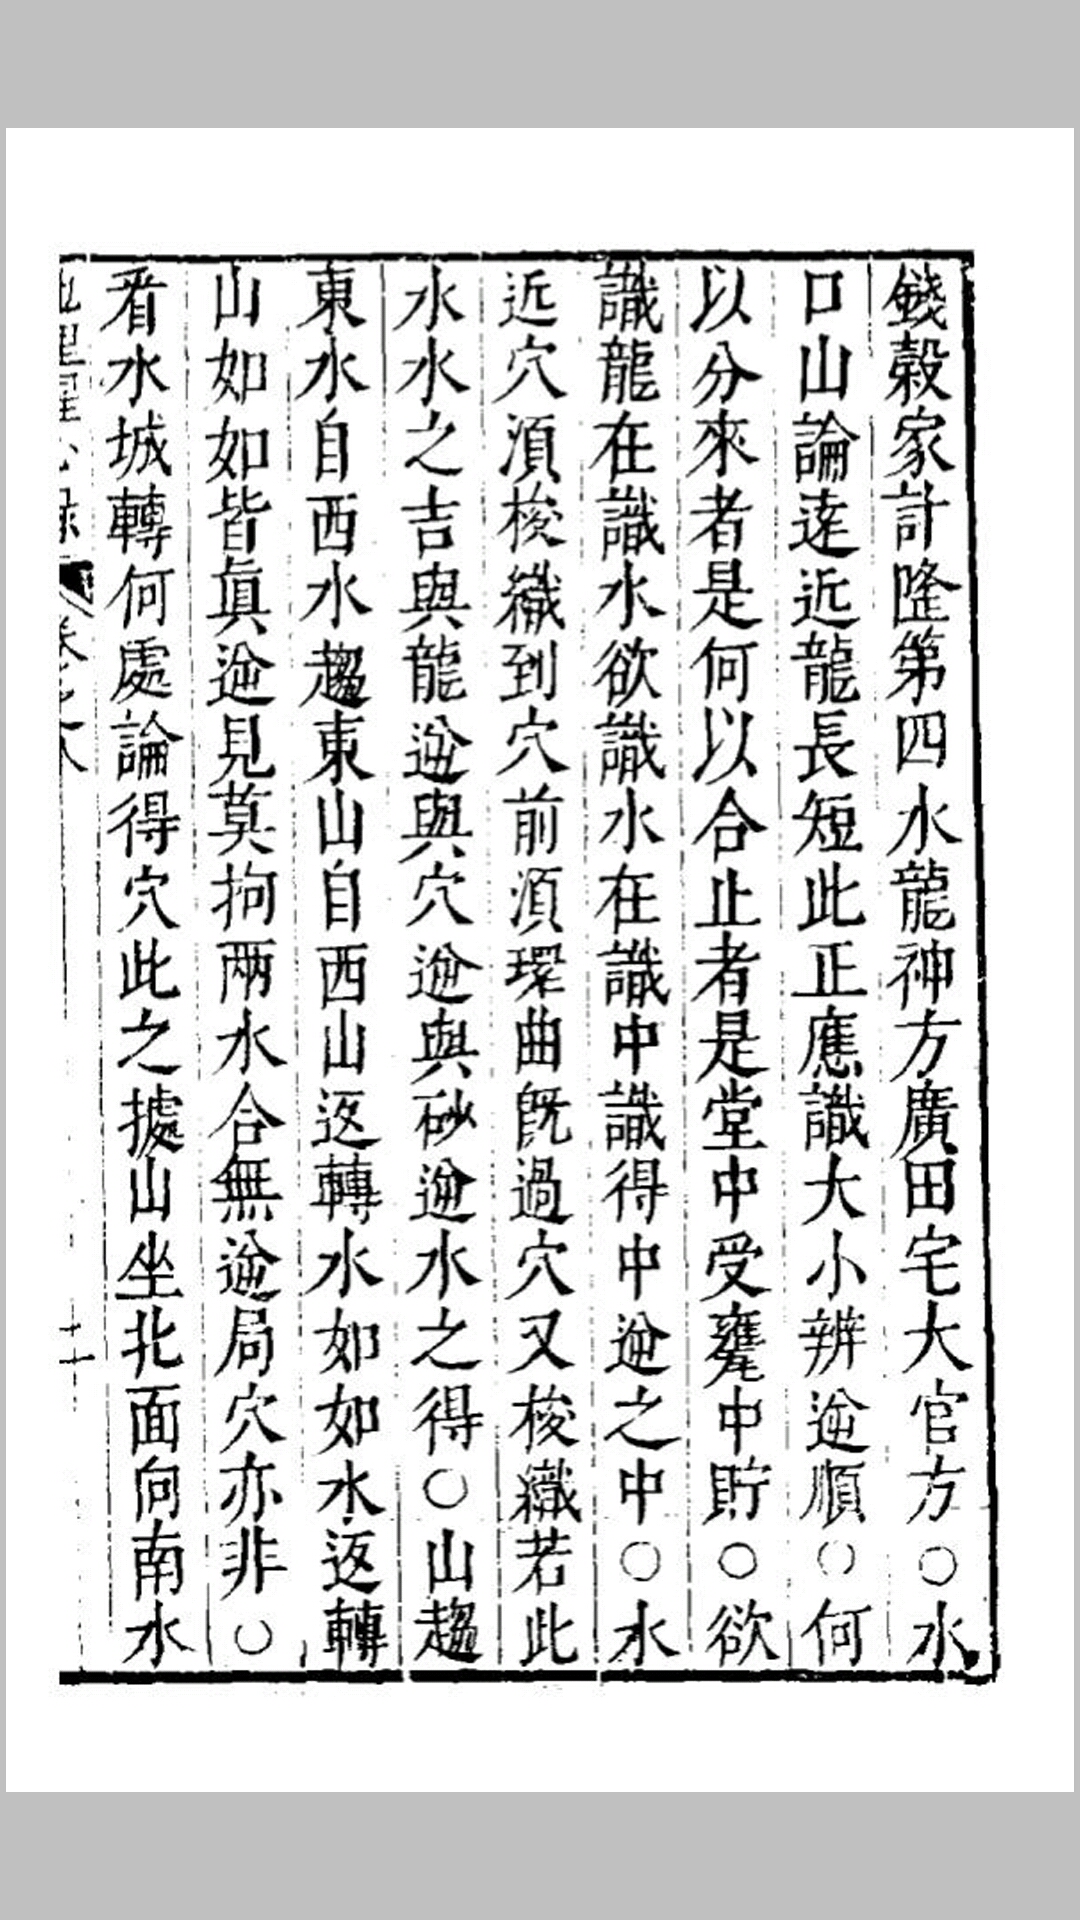 錢穀家計隆第四水龍神方廣田宅大官方○水
口山論逺近龍長短此正應識大小辨逆順○何
以分來者是何以合止者是堂中受蕋中貯○欲
識龍在識水欲識水在識中識得中逆之中○水
近穴湏梭織到穴前湏環曲旣過穴又梭織若此
水水之吉與龍逆與穴逆與砂逆水之得○山趨
東水自西水趨東山自西山返轉水如如水返轉
山如如皆眞逆見莫拘兩水合無逆局穴亦非○
看水城轉何處論得穴此之據山坐北面向南水
十一